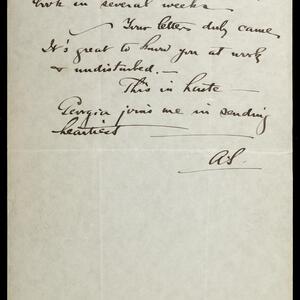 work in several weeks
Your letter duly came
It's great to know you at work
& undisturbed.—
This in haste—
Georgia joins me in sending
heartiest
AS.